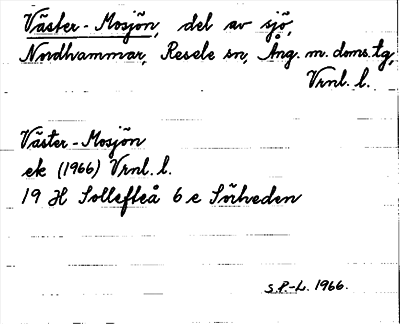 Väster-Mosjön, del av sjö,
Nordhammar, Resele sn, Ång. m. doms. tg,
Vrnl. l.
Väster-Mosjön
ek (1966) Vrnl. l.
19 H Sollefteå 6 e Sörheden
S.P-L. 1966.